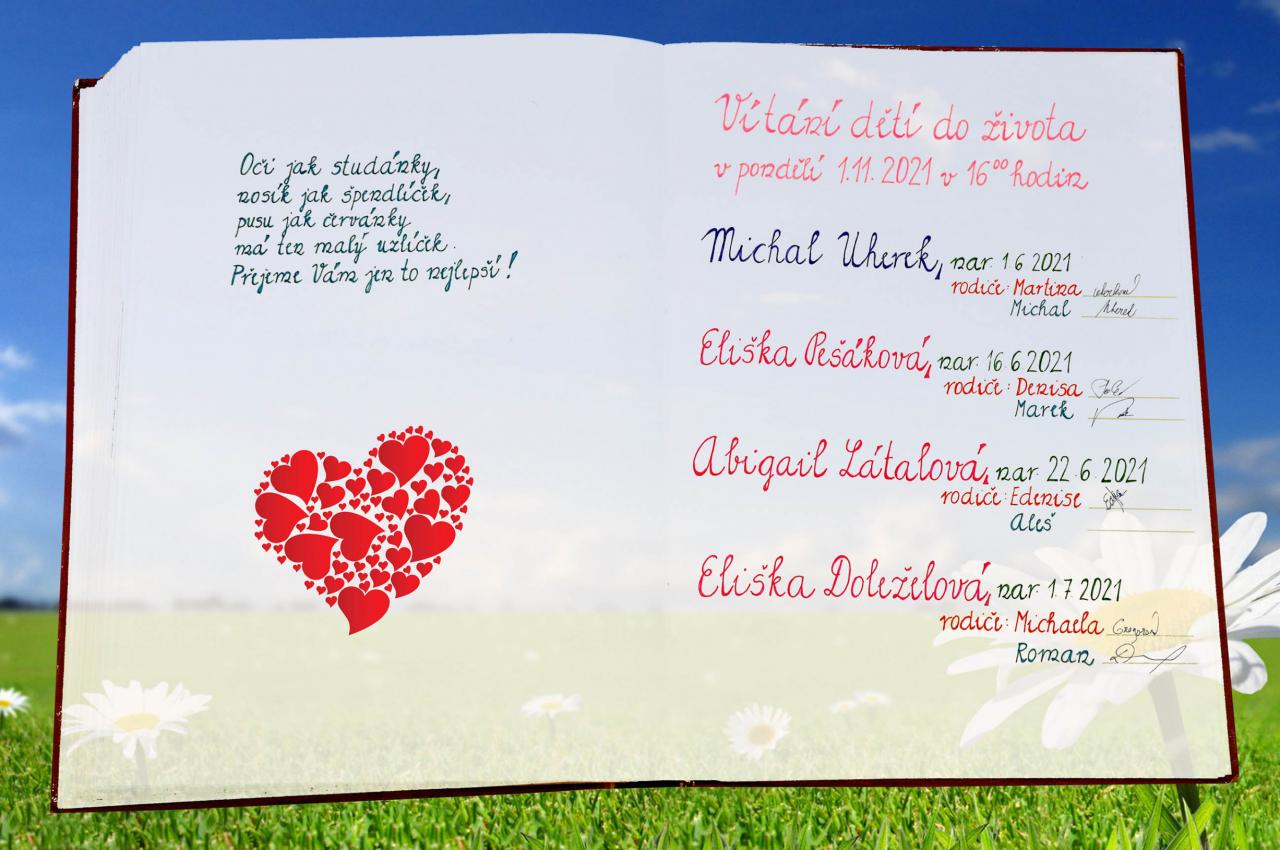 Oči jak studánky,
nosík jak špendlíček,
pusu jak červánky
má ten malý uzlíček.
Přejeme Vám jen to nejlepší!
Vítání dětí do života
v pondělí 1.11. 2021 v 16⁰⁰ hodin
Michal Uherek, nar. 1.6 2021
rodiče: Martina
Michal Uherek
Eliška Pešáková, nar. 16.6 2021
rodiče: Denisa
Marek
Abigail Látalová, nar. 22.6.2021
rodiče: Edenise
Aleš
Eliška Doleželová, nar. 1.7.2021
rodiče: Michaela
Roman